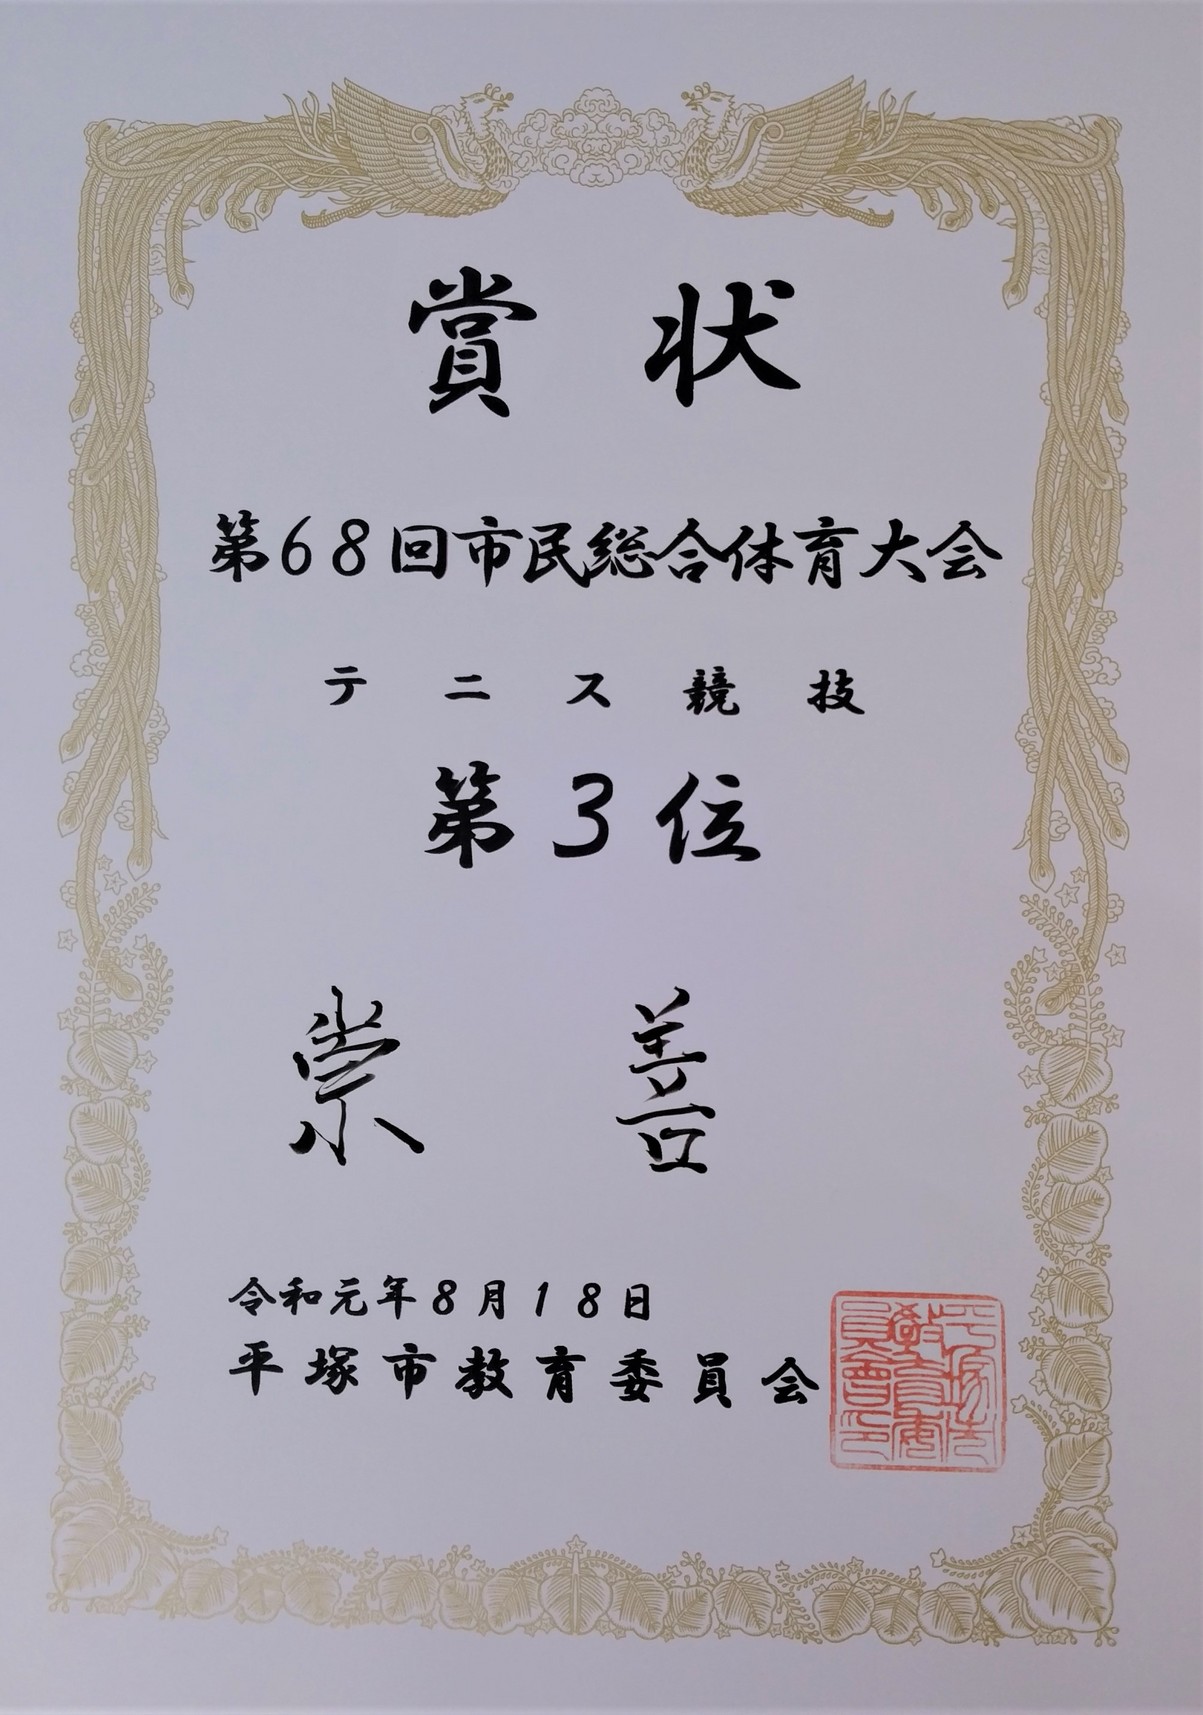 賞状
第68回市民総合体育大会
テニス競技
第3位
崇善
令和元年8月18日
平塚市教育委員会
平塚市
教育委
員會印